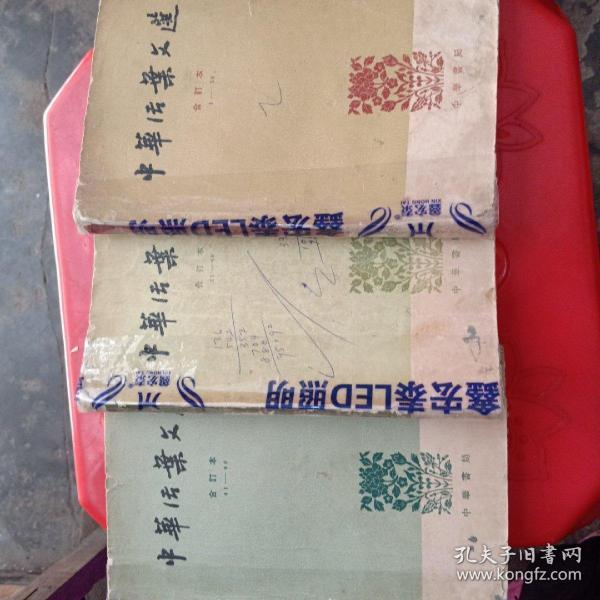 中華活葉文選
合訂本
中華書局
鑫宏泰LED照明
鑫宏泰
XIN HONG TAI
中華活葉
合訂本
中華書局
鑫宏泰LED照明
鑫宏泰
中華活葉文
合訂本
中華書局
孔夫子旧书网
www.kongfz.com